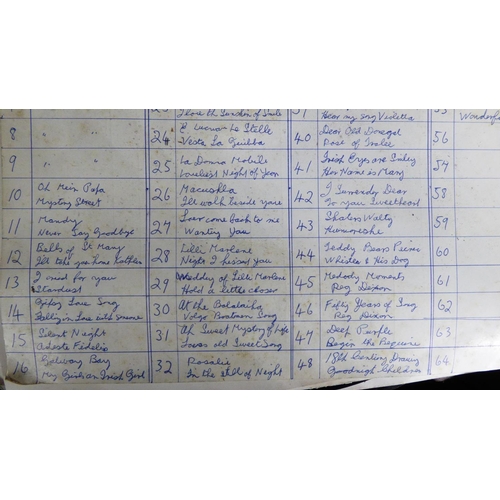 I love the London of Smile
Hear my Song Violetta
Wonderful
8
" "
24
E Lucevan Le Stelle
Vesta La Guibba
40
Dear Old Donegal
Rose of Tralee
56
9
" "
25
La Donna Mobile
Loveliest Night of Year
41
Irish Eyes are Smiling
Her Name is Mary
57
10
Oh Mein Papa
Mystery Street
26
Macushla
I'll walk beside you
42
I Surrender Dear
To you Sweetheart
58
11
Mandy
Never Say Goodbye
27
Love come back to me
Wanting You
43
Skaters Waltz
Humoreske
59
12
Bells of St Mary
I'll take you home Kathleen
28
Lilli Marlene
Night I kissed you
44
Teddy Bears Picnic
Whistler & His Dog
60
13
I cried for you
Stardust
29
Wedding of Lilli Marlene
Hold a little closer
45
Melody Moments
Reg Dixon
61
14
Gipsy Love Song
Falling in Love with someone
30
At the Balalaika
Volga Boatman Song
46
Fifty Years of Song
Reg Dixon
62
15
Silent Night
Adeste Fidelis
31
Ah Sweet Mystery of Life
Loves old Sweet Song
47
Deep Purple
Begin the Beguine
63
16
Galway Bay
My Irish Girl
32
Rosalie
In the still of Night
48
18th Century Drawing
Goodnight Children
64